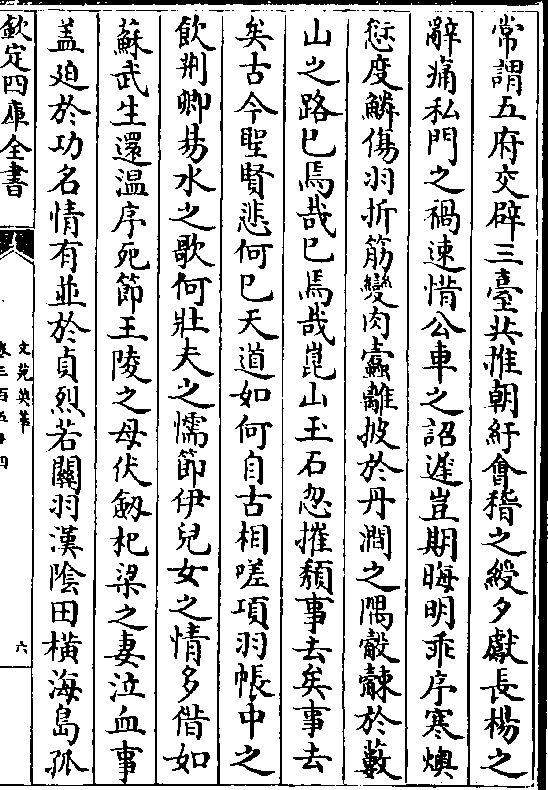 常謂五府交辟三臺共推朝紆會稽之綬夕獻長楊之
辭痛私門之禍速惜公車之詔遲豈期晦明乖序寒燠
愆度鱗傷羽折筋攣肉蠹離披於丹澗之隅觳觫於藪
山之路已焉哉已焉哉崑山玉石忽摧頽事去矣事去
矣古今聖賢悲何已天道如何自古相嗟項羽帳中之
飲荆卿易水之歌何壯夫之懦節伊兒女之情多借如
蘇武生還温序死節王陵之母伏劒杞梁之妻泣血事
盖迫於功名情有並於貞烈若關羽漢隂田横海島孤
欽定四庫全書
文苑英華
卷三百五十四
六